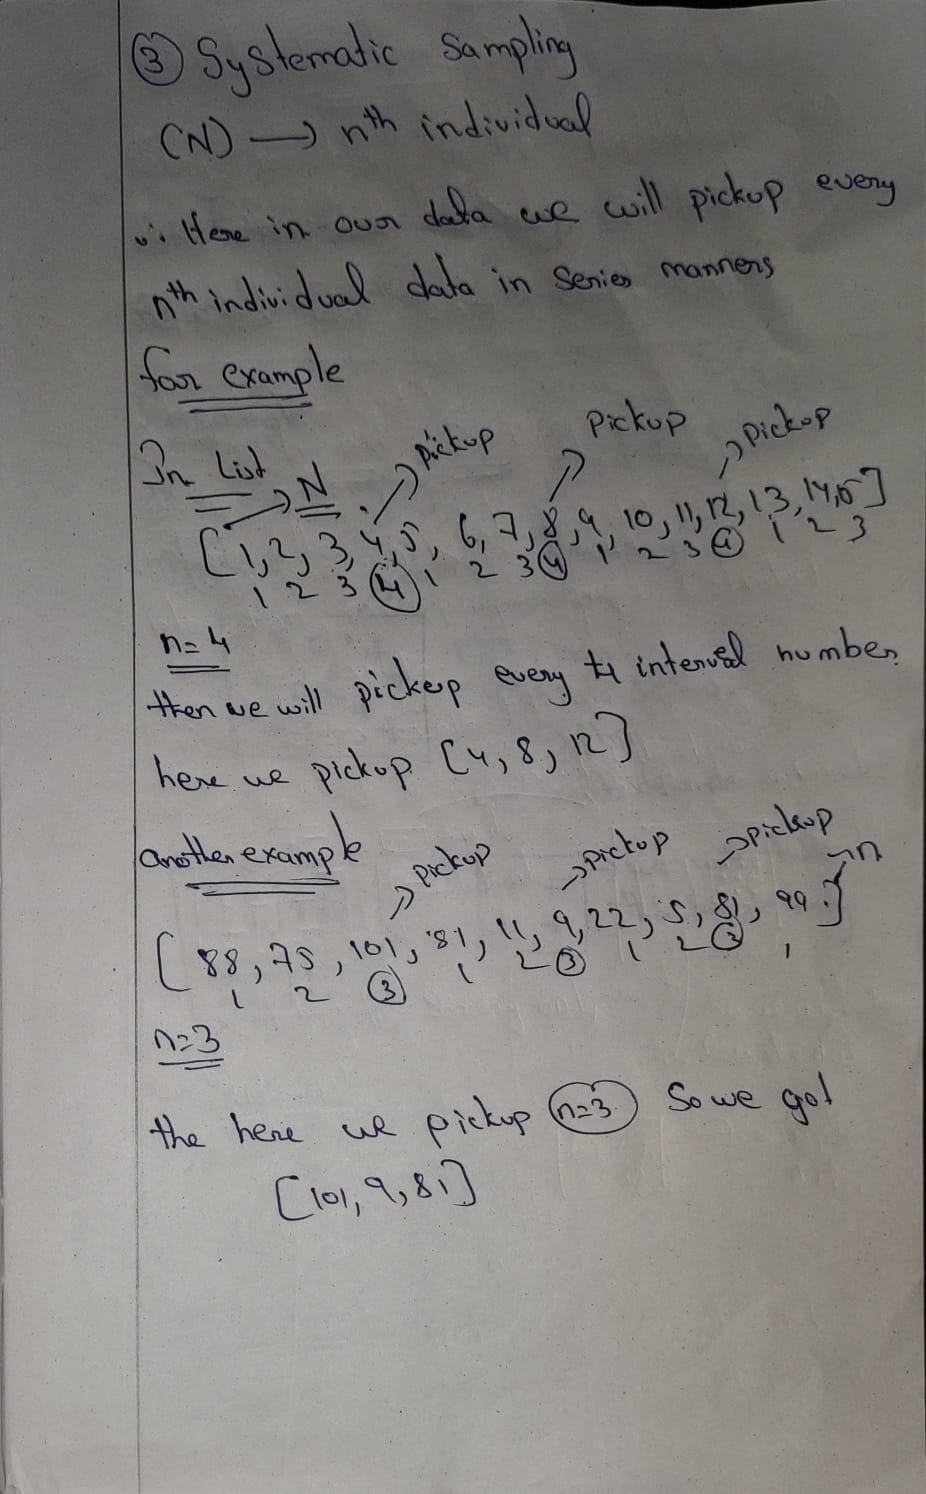 ③ Systematic Sampling
(N) → nth individual
∴ Here in our data we will pickup every
nth individual data in Series manners
for example
In List → N → pickup → Pickup → pickup
[1, 2, 3, 4, 5, 6, 7, 8, 9, 10, 11, 12, 13, 14, 15]
1 2 3 ④ 1 2 3 ④ 1 2 3 ④ 1 2 3
n=4
then we will pickup every 4 interval number
here we pickup [4, 8, 12]
another example → pickup → pickup → pickup → n
[88, 75, 101, 81, 11, 9, 22, 5, 81, 99]
1 2 ③ 1 2 ③ 1 2 ③ 1
n=3
the here we pickup n=3 So we got
[101, 9, 81]